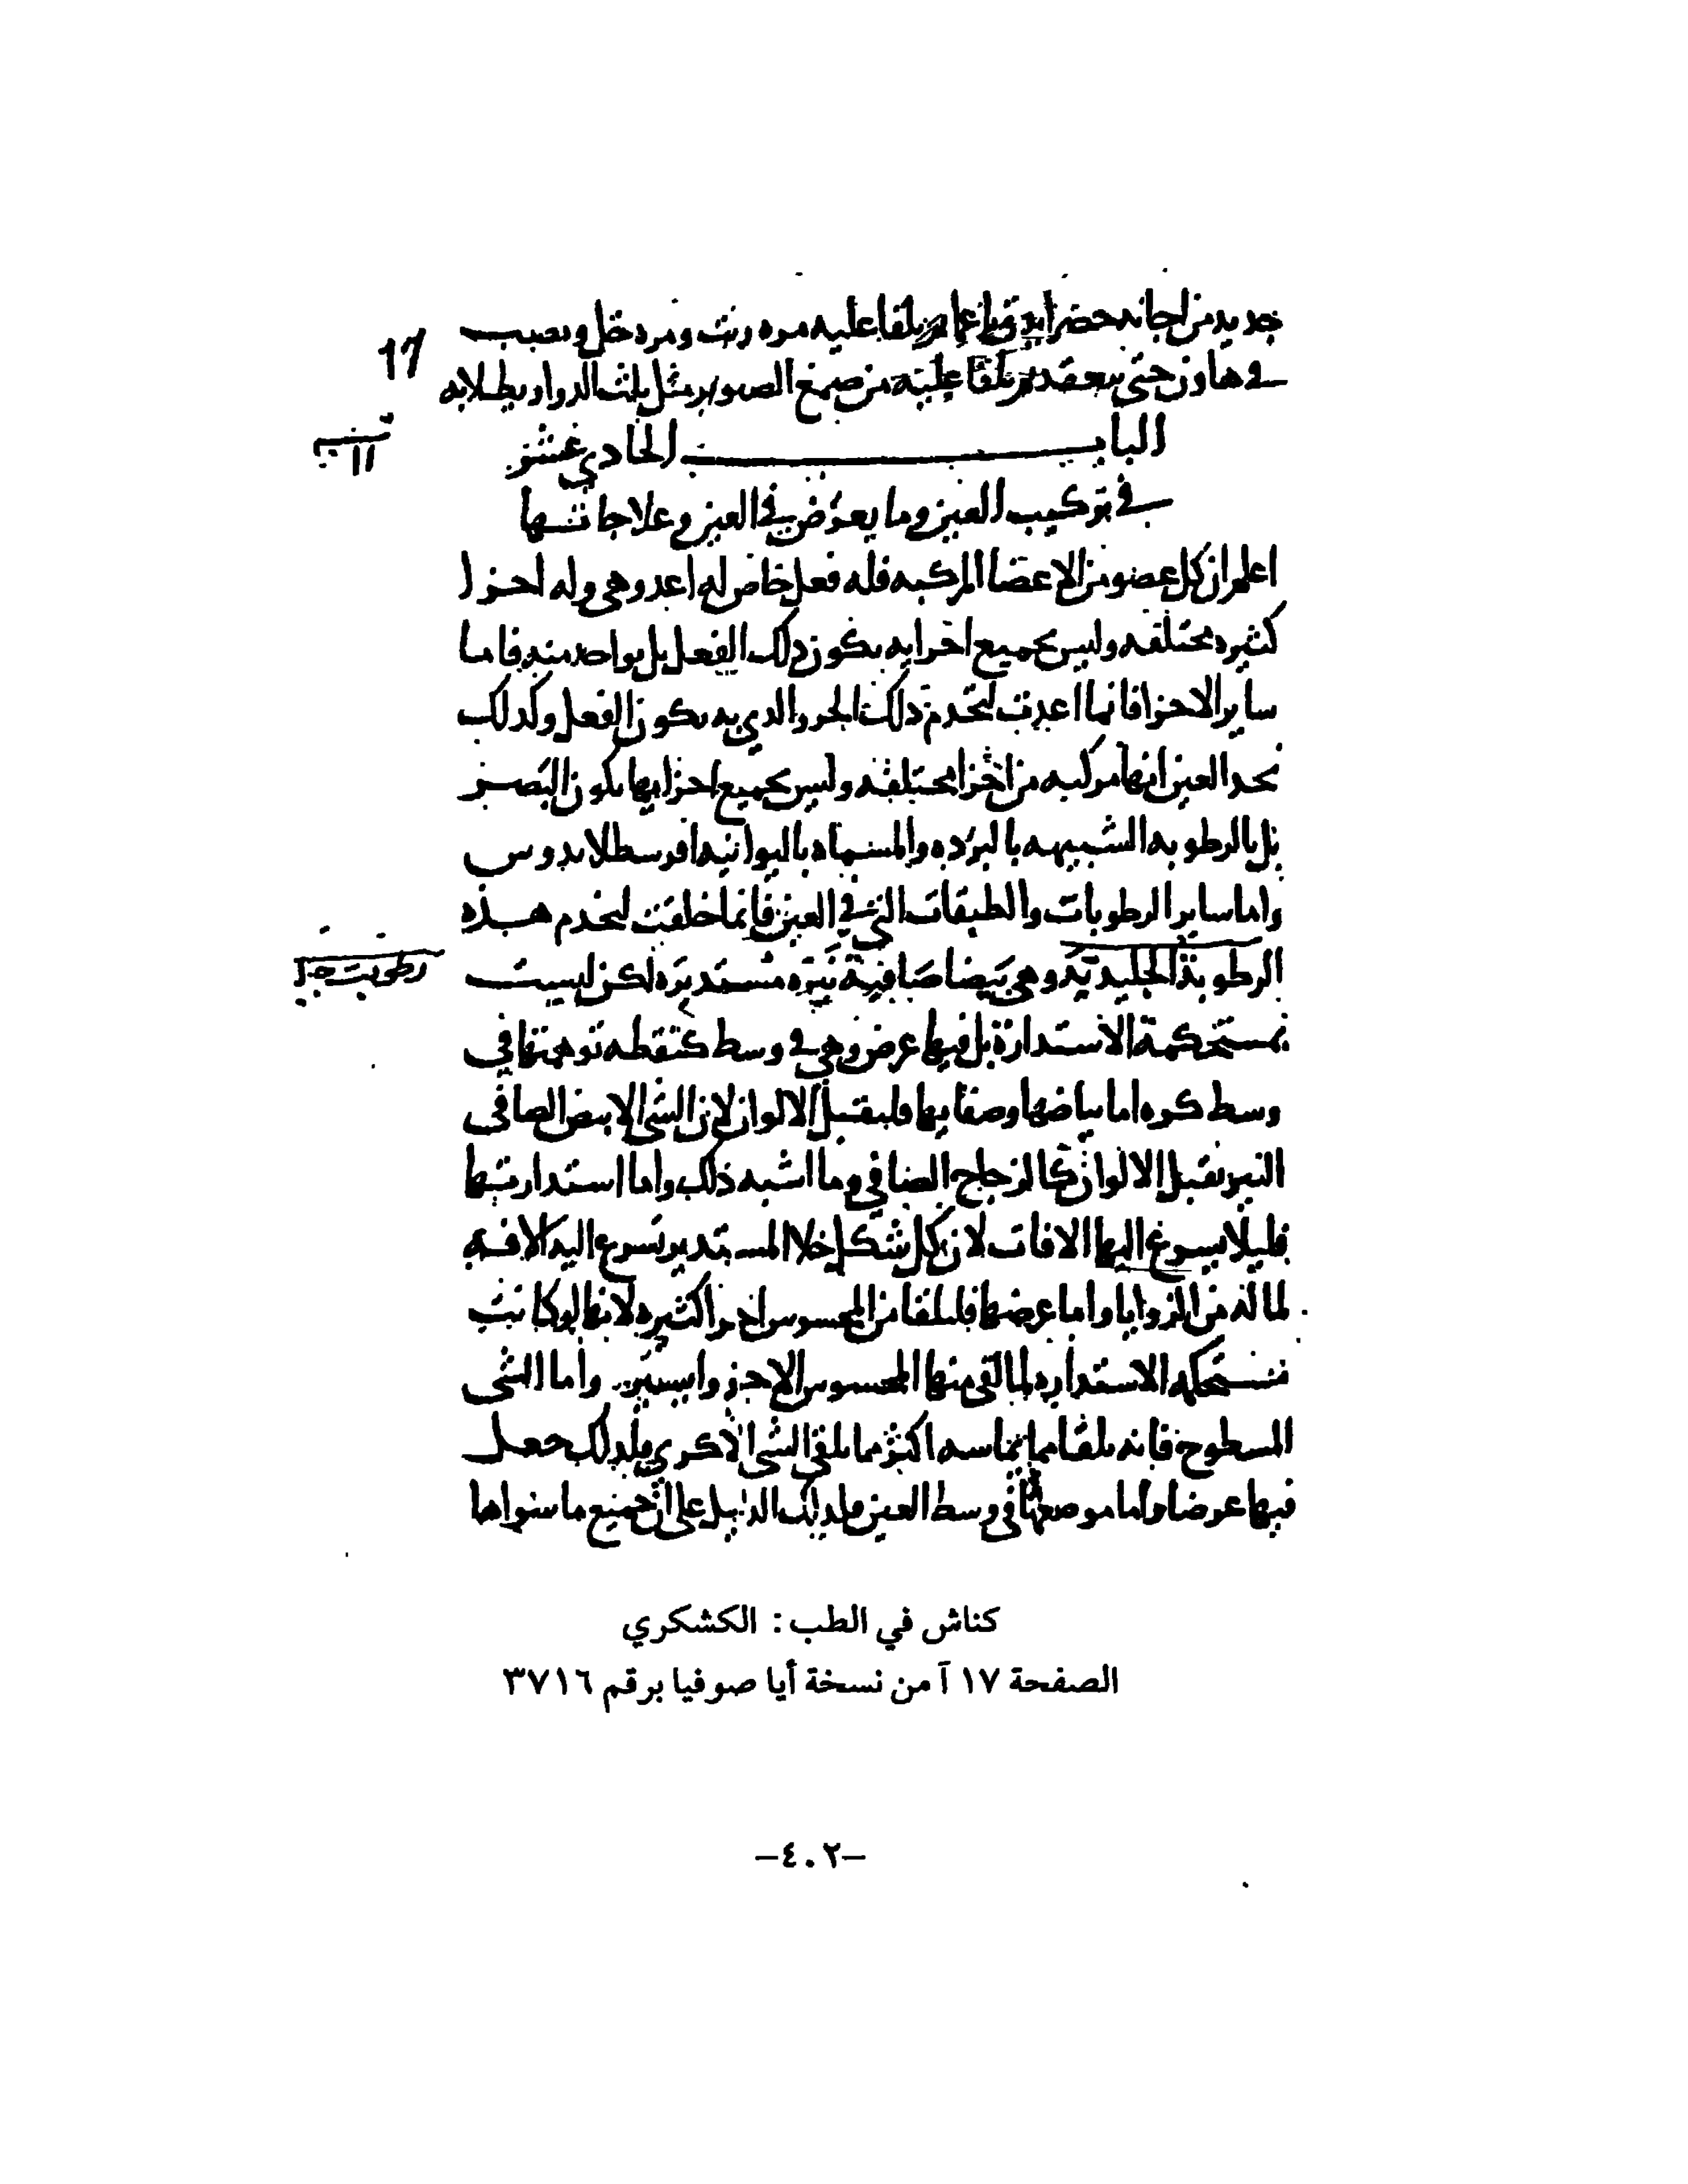 جديد من اجانه خضرا يلقا عليه مره زيت ومره خل ويصيب
في هاون حتى ينعقد ثم يلقا عليه من صمغ الصنوبر مثل ثلث الدوا ويطلا به
17
الباب الحادي عشر
باب
11
في تركيب العين وما يعرض في العين وعلاجاتها
اعلم ان كل عضو من الاعضا المركبه فله فعل خاص له اعد وهي وله اجزا
كثيره مختلفه وليس بجميع اجزايه يكون ذلك الفعل بل بواحد منه فاما
ساير الاجزا فانما اعدت لتخدم ذلك الجزو الذي به يكون الفعل وكذلك
نجد العين انها مركبه من اجزا مختلفه وليس بجميع اجزايها يكون البصر
بل بالرطوبه الشبيهه بالبرده والمسماه باليوانيه اقرسطلايدوس
واما ساير الرطوبات والطبقات التي في العين فانما خلقت لتخدم هذه
الرطوبة الجليدية وهي بيضا صافية نيره مستديره لكن ليست
رطوبت
بمستحكمة الاستدارة بل فيها عرض وهي في وسط كنقطه توهمتها في
وسط كره اما بياضها وصفايها فليقبل الالوان لان الشي الابيض الصافي
النير يقبل الالوان كالزجاج الصافي وما اشبه ذلك واما استدارتها
فليلا يسرع اليها الافات لان كل شكل خلا المستدير تسرع اليه الافه
لما له من الزوايا واما عرضها فليلقا من المحسوس اجزا كثيره لانها لو كانت
مستحكمه الاستداره لما لقي منها المحسوس الا جزوا يسير واما الشي
المسطوح فانه يلقا مما يماسه اكثر مما يلقي الشي الاكري فلذلك جعل
فيها عرضا واما موضعها في وسط العين فلذلك الدليل على ان جميع ما سواها
كناش في الطب : الكشكري
الصفحة ١٧ آ من نسخة أيا صوفيا برقم ٣٧١٦
-٤٠٢-